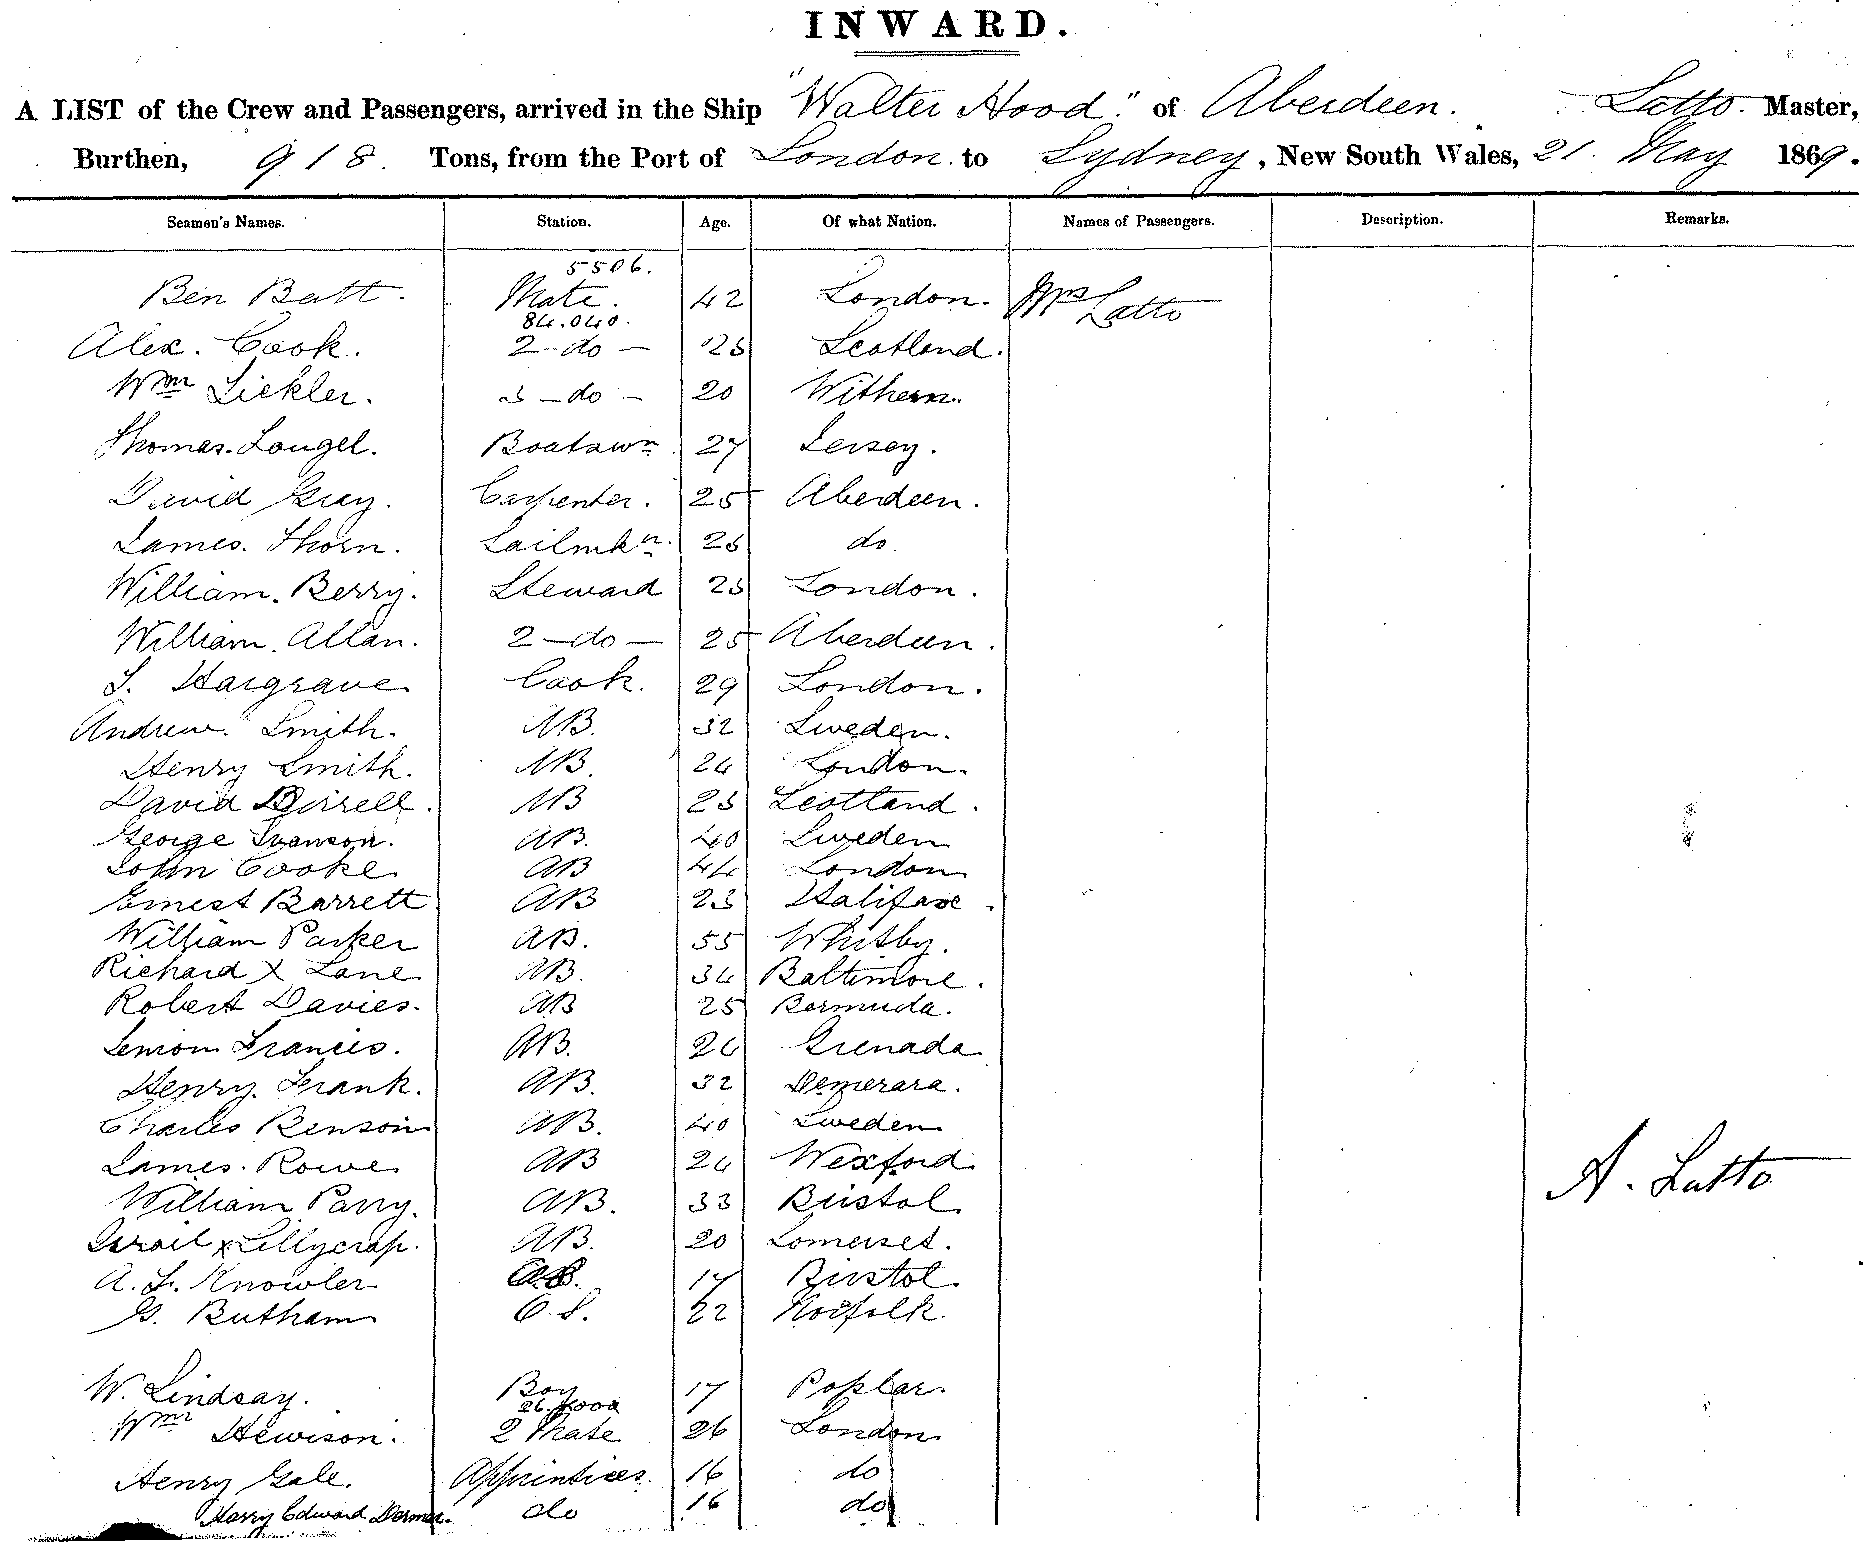 INWARD.
A LIST of the Crew and Passengers, arrived in the Ship "Walter Hood" of Aberdeen. Latto Master,
Burthen, 918 Tons, from the Port of London to Sydney, New South Wales, 21 May 1869.
Seamen's Names. Station. Age. Of what Nation. Names of Passengers. Description. Remarks.
5506.
Ben Batt. Mate. 42 London. Mrs Latto
84.040.
Alex. Cook. 2 - do - 25 Scotland.
Wm Sickler. 3 - do - 20 Withern.
Thomas. Lougel. Boatswn 27 Jersey.
David Gray. Carpenter. 25 Aberdeen.
James. Thorn. Sailmkr. 25 do.
William. Berry. Steward 25 London.
William. Allan. 2 - do - 25 Aberdeen.
Hargrave Cook. 29 London.
Andrew. Smith. AB. 32 Sweden.
Henry Smith. AB. 24 London.
David Birrell. AB 23 Scotland.
George Swanson. AB. 40 Sweden
John Cooke AB 44 London
Ernest Barrett AB 23 Halifax.
William Parker AB. 55 Whitby.
Richard X Lane AB. 34 Baltimore.
Robert Davies. AB 25 Bermuda.
Francis. AB. Grenada
Henry. Frank. AB. 32 Demerara.
Charles Benson AB. 40 Sweden
James. Rowe AB 24 Wexford
A. Latto
William Parry. AB. 33 Bristol
Israil x Lillycrap. AB. 20 Somerset.
A. F. Knowler 17 Bristol.
G. Butham O.S. 22 Norfolk.
W. Lindsay. Boy 17 Poplar.
Wm Hewison. 2 Mate 26 London
Henry Gale. Apprintices. 16 do
Harry Edward do 16 do